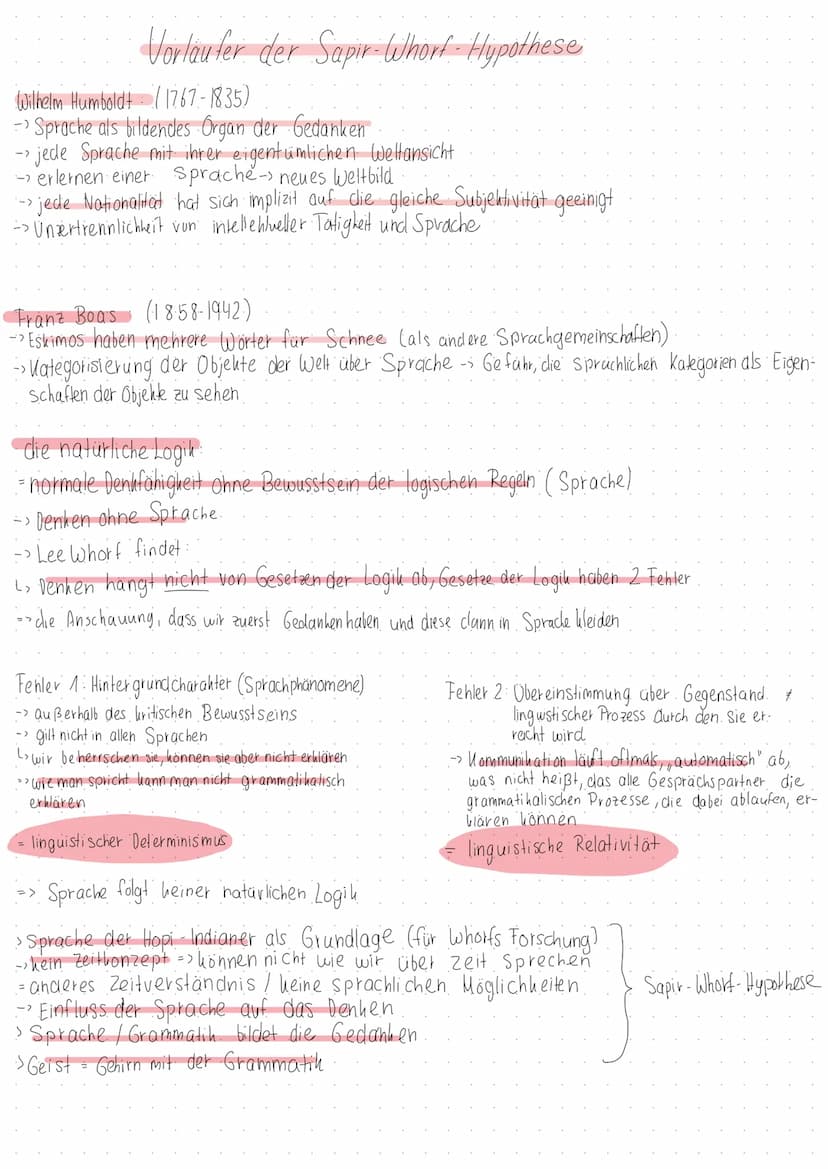 Vorläufer der Sapir-Whorf-Hypothese
Wilhelm Humboldt: (1767-1835)
-> Sprache als bildendes Organ der Gedanken
-> jede Sprache mit ihrer eigentümlichen Weltansicht
-> erlernen einer Sprache -> neues Weltbild
-> jede Nationalität hat sich implizit auf die gleiche Subjektivität geeinigt
-> Unzertrennlichkeit von intellektueller Tätigkeit und Sprache
Franz Boas: (1858-1942)
-> Eskimos haben mehrere Wörter für Schnee (als andere Sprachgemeinschaften)
-> Kategorisierung der Objekte der Welt über Sprache -> Gefahr, die sprachlichen Kategorien als Eigen-
schaften der Objekte zu sehen
die natürliche Logik:
= normale Denkfähigkeit ohne Bewusstsein der logischen Regeln (Sprache)
-> Denken ohne Sprache
-> Lee Whorf findet:
↳ Denken hängt nicht von Gesetzen der Logik ab, Gesetze der Logik haben 2 Fehler
=> die Anschauung, dass wir zuerst Gedanken haben und diese dann in Sprache kleiden
Fehler 1: Hintergrundcharakter (Sprachphänomene)
-> außerhalb des kritischen Bewusstseins
-> gilt nicht in allen Sprachen
↳ wir beherrschen sie, können sie aber nicht erklären
=> wie man spricht kann man nicht grammatikalisch
erklären
= linguistischer Determinismus
Fehler 2: Übereinstimmung über Gegenstand ≠
linguistischer Prozess durch den sie er-
reicht wird
-> Kommunikation läuft oftmals „automatisch" ab,
was nicht heißt, das alle Gesprächspartner die
grammatikalischen Prozesse, die dabei ablaufen, er-
klären können
= linguistische Relativität
=> Sprache folgt keiner natürlichen Logik
> Sprache der Hopi-Indianer als Grundlage (für Whorfs Forschung)
-> kein Zeitkonzept => können nicht wie wir über Zeit sprechen
= anderes Zeitverständnis / keine sprachlichen Möglichkeiten
-> Einfluss der Sprache auf das Denken
> Sprache / Grammatik bildet die Gedanken
> Geist = Gehirn mit der Grammatik
Sapir-Whorf-Hypothese